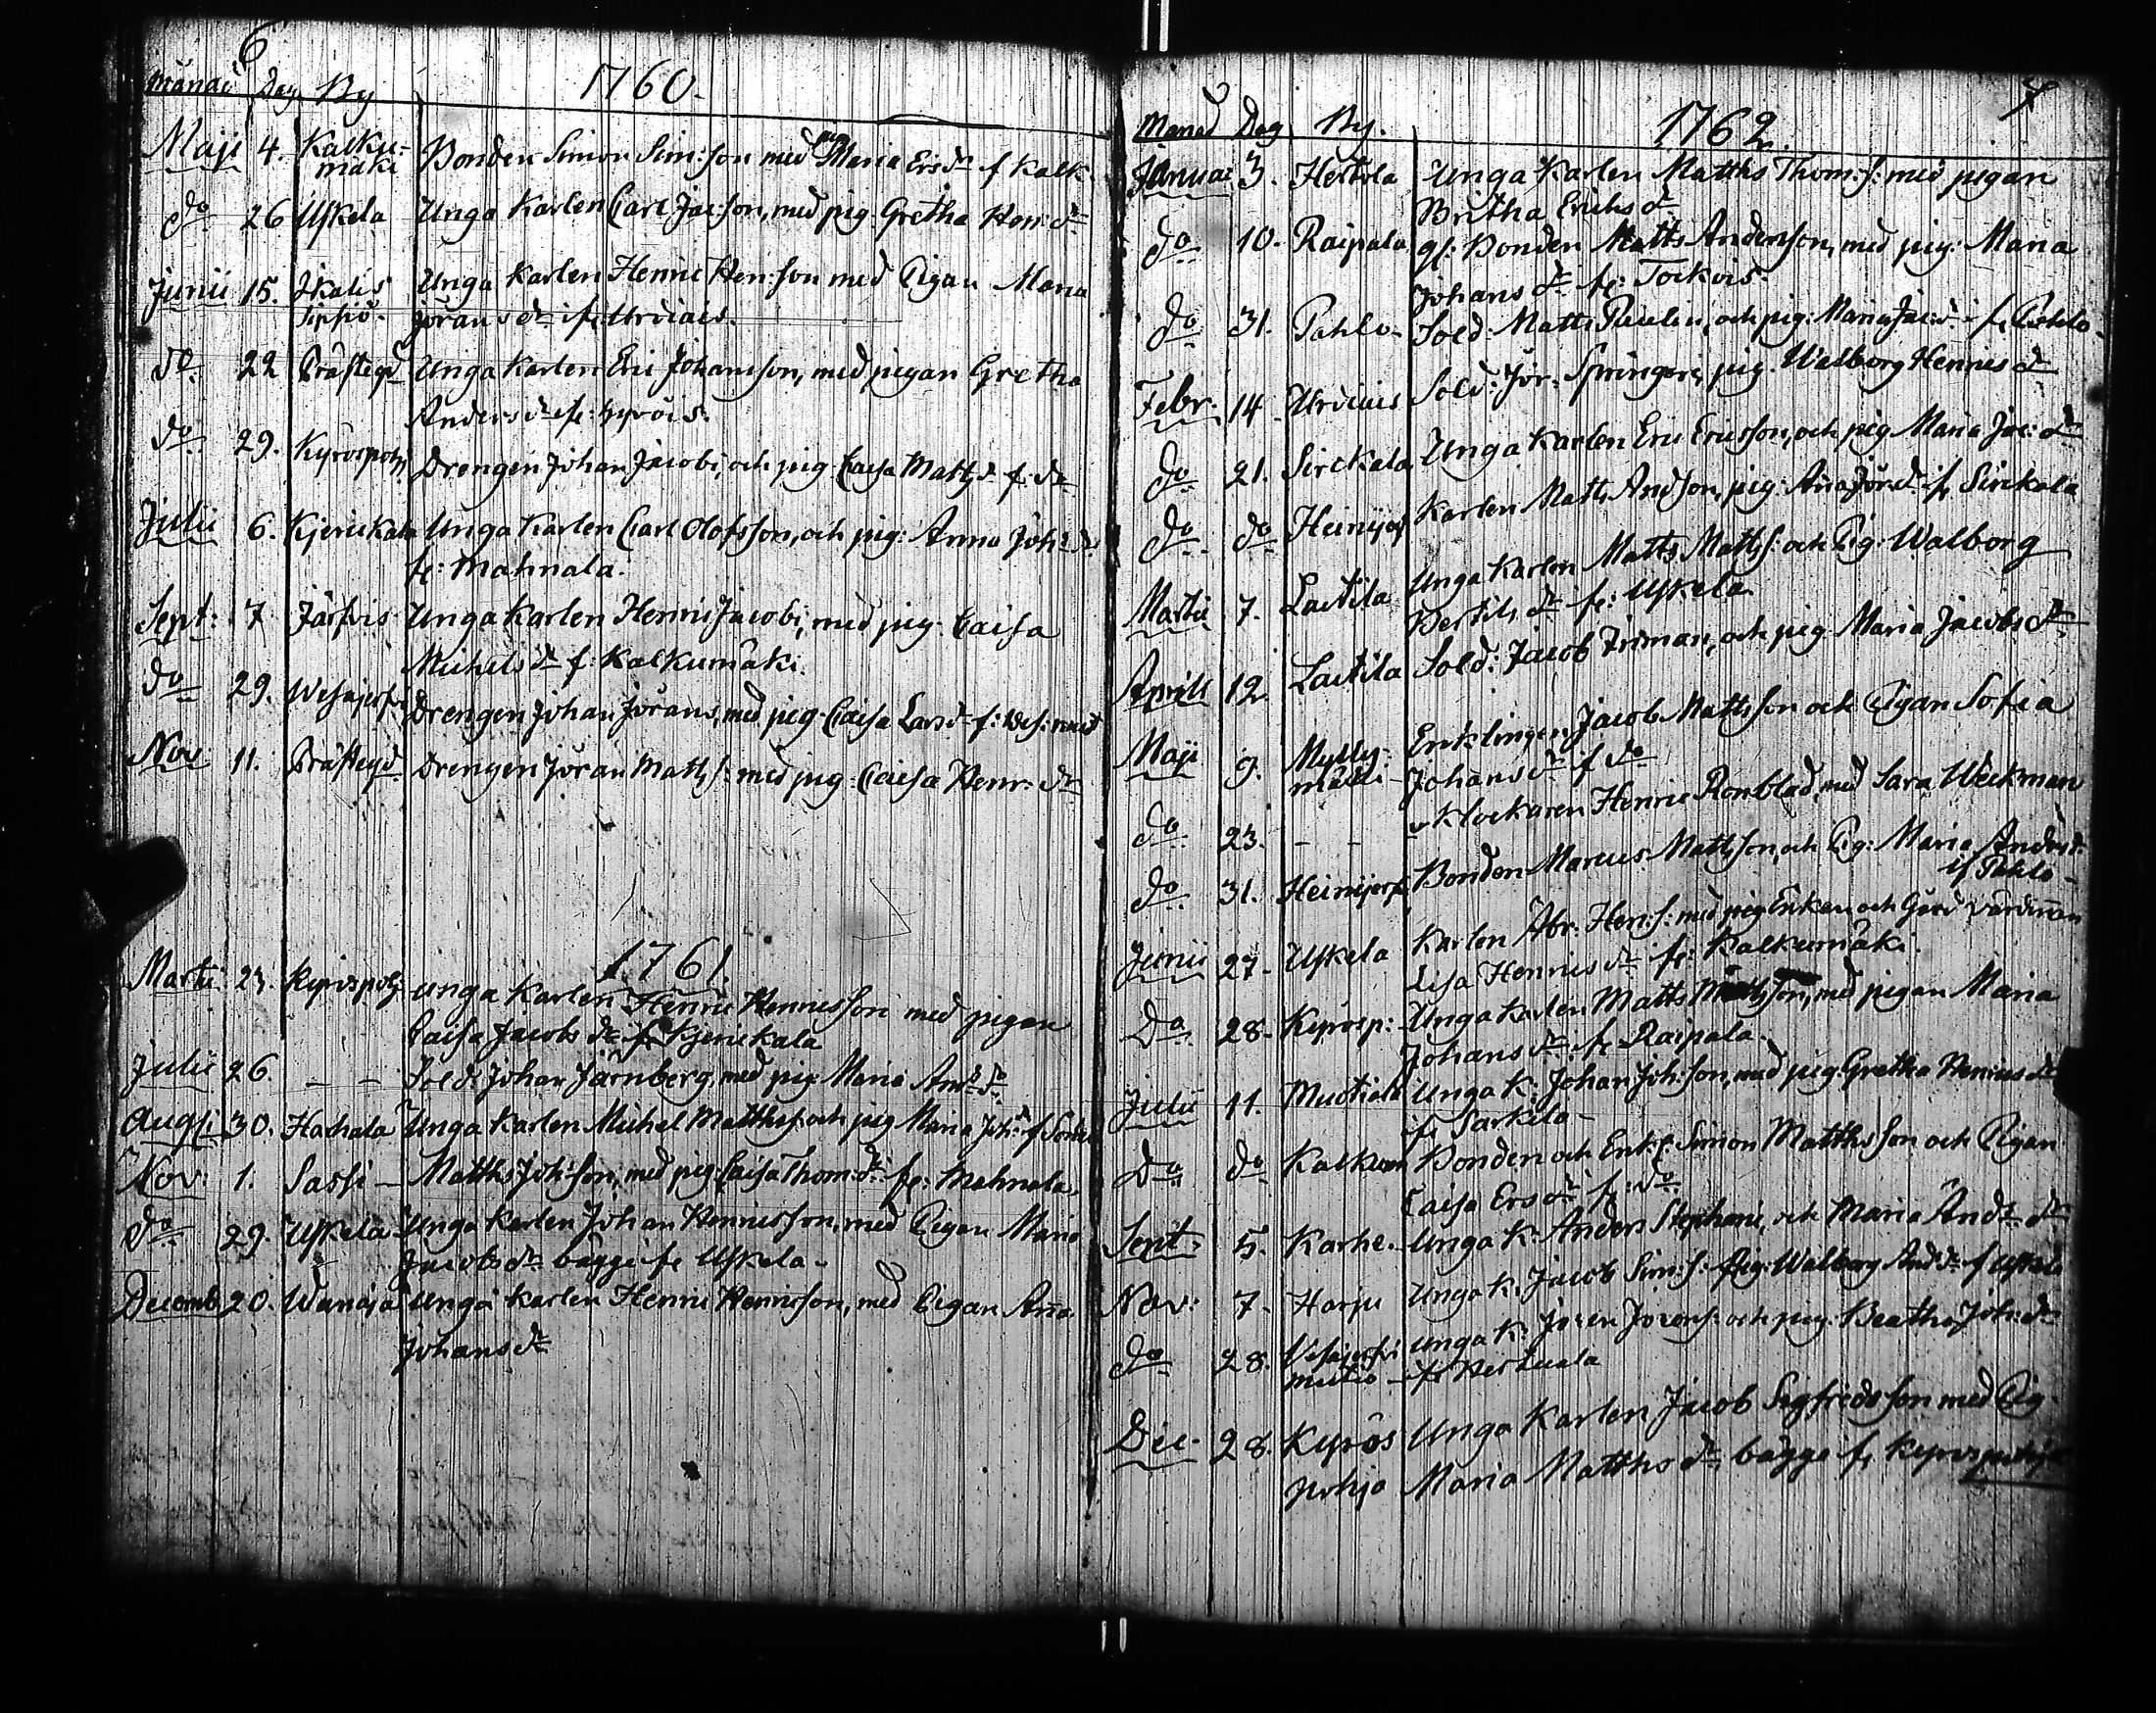 6
Månad Dag By 1760.
Maji 4. Kalku= Bonden Simon Sim:son med Maria Ersdr f Kalk.
mäki
do 26 Uskela Unga Karlen Carl Jac:son, med pig. Gretha Hen: dr
Junii 15. Ikalis Unga Karlen Henric Hen:son med Pigan Maria
Sippiö. Jörans dr fr Urdiais.
do 22 Prästegd Unga Karlen Eric Johansson, med pigan Gretha
Anders dr fr: Kyröis.
do 29. Kyröspohj Drengen Johan Jacobi, och pig Caisa Matts d fr do
Julii 6. Kjerickala Unga Karlen Carl Olofsson, och pig: Anna Joh: d.
fr: Mahnala.
Sept: 7 Järfvis Unga Karlen Henric Jacobi, med pig. Caisa
Michels dr f: Kalkumäki.
do 29. Wesajerfvi Drengen Johan Jörans, med pig. Caisa Lars dr f: Wes:
Nov 11. Prästegd. Drengen Jöran Matts s: med pig: Caisa Henr: dr
1761
Martii 23. Kyröspohj Unga Karlen Henric Henricsson med pigan
Caisa Jacobs dr fr Kjerickala
Julii 26. - - Sold: Johan Järnberg, med pig: Maria And: dr
Augsti 30. Hachala Unga Karlen Michel Matths s: och pig Maria Joh: d f
Nov: 1. Sassi - Matths Joh:son, med pig: Caisa Thom: dr fr: Mahnala.
do 29. Uskela Unga Karlen Johan Henricsson, med Pigan Maria
Jacobs dr bägge fr Uskela -
Decemb 20. Wanaja Unga Karlen Henric Henricsson, med Pigan Anna
Johans dr
7
Månad Dag By. 1762.
Januar 3. Hertola Unga Karlen Matths Thom: s: med pigan
Britha Erichs d
do 10. Raipala gl: Bonden Matts Andersson, med pig: Maria
Johans dr fr: Tockois.
do 31. Pahlo- Sold: Matts Paulin, och pig: Maria Jac: d. fr Pahlo-
Febr. 14 Urdiais Sold: Jör: Springare, pig. Walborg Henrics dr
do 21. Sirckala Unga Karlen Eric Ericsson, och pig Maria Jac: dr
do do Heinijerf Karlen Matts Andson, pig: Anna Jör: d. fr Sirckala
Martii 7. Laitila Unga Karlen Matts Matts s: och Pig: Walborg
Bertils dr fr: Uskela
Aprill 12. Laitila Sold: Jacob Friman, och pig Maria Jacobs dr
Maji 9. Mylly= Enklingen Jacob Mattsson och Pigan Sofia
mäki - Johans dr f do
do 23. - - Klockaren Henric Rönblad, med Sara Weckman
do 31. Heinijerf Bonden Marcus Mattsson, och Pig: Maria Anders d:
if Pahlo -
Junii 27. Uskela Karlen Abr: Hen: s: med pig Enkan och Gård värdinnan
Lisa Henrics dr fr: Kalkumäki.
Do 28. Kyrösp: Unga Karlen Matts Mattsson, med pigan Maria
Johans dr fr Raipala.
Julii 11. Mustiala Unga K: Johan Joh:son, med pig Gretha Henrics dr
fr Sarkela -
Do do Kalkum Bonden och Enk:l: Simon Matthsson och Pigan
Caisa Ersdr fr: do.
Sept: 5. Karhe. Unga K: Anders Stephani, och Maria And: dr
Nov: 7. Harju Unga K: Jacob Sim: s: Pig: Walborg And: dr f Uskela
do 28. Vesajerfvi Unga K: Jören Jörens: och pig: Beatha Joh: dr
- fr Herttuala
Dec. 28. Kyrös Unga Karlen Jacob Sigfredsson med Pig
pohja Maria Matths dr bägge fr Kyröspohja